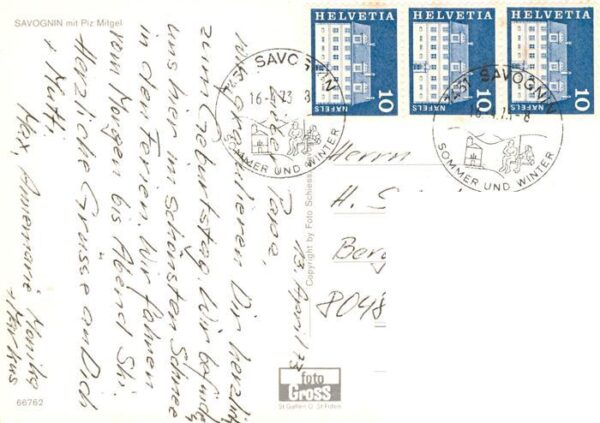 SAVOGNIN mit Piz Mitgel
13. April 73
Lieber Papa,
Wir gratulieren Dir herzlich
zum Geburtstag. Wir befinden
uns hier im schönsten Schnee
in den Ferien. Wir fahren
vom Morgen bis Abend Ski.
Herzliche Grüsse an Dich
+ Mutti.
Max, Annemarie, Monika
+ Markus
66762
Copyright by Foto
foto
Gross
St. Gallen O St. Fiden
HELVETIA
NÄFELS
10
HELVETIA
NÄFELS
10
HELVETIA
NÄFELS
10
7451 SAVOGNIN
SOMMER UND WINTER
7451 SAVOGNIN
SOMMER UND WINTER
Herrn
H.
Berg
8048